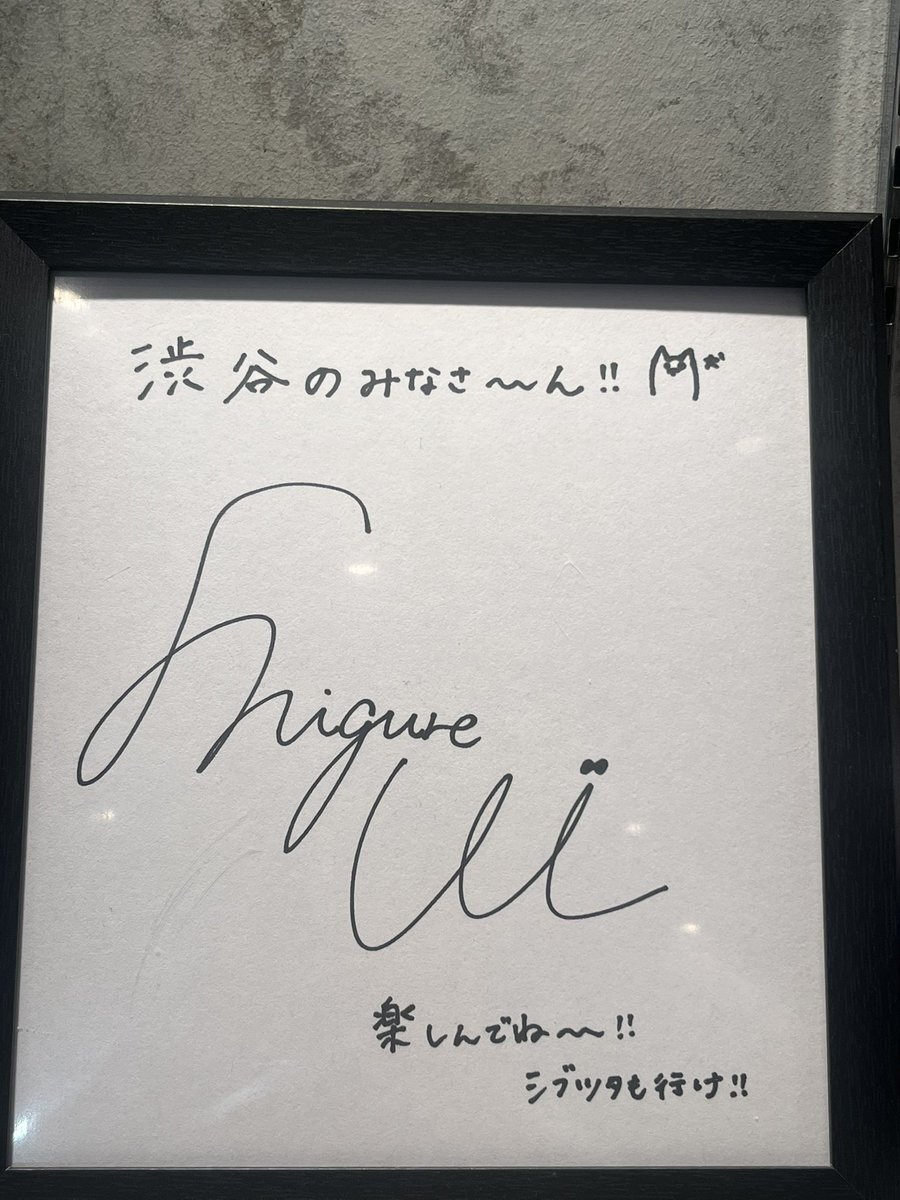 渋谷のみなさ〜〜ん!!
Shigure
Ui
楽しんでね〜〜!!
シブツタも行け!!